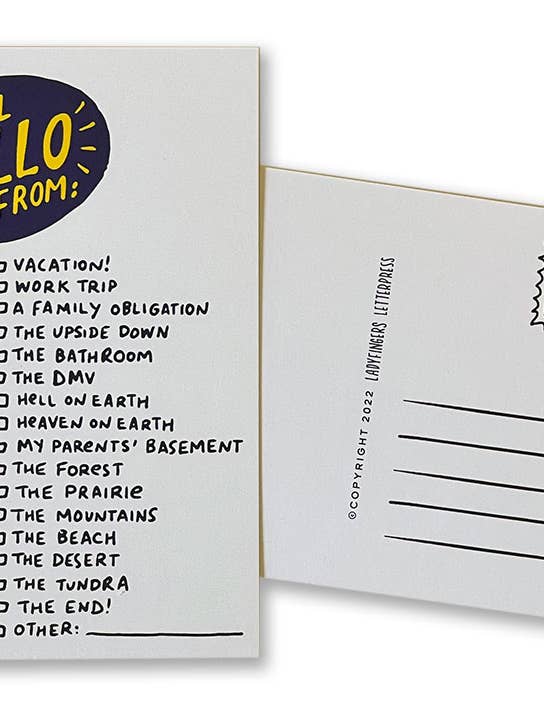 LLO
FROM:
VACATION!
WORK TRIP
A FAMILY OBLIGATION
THE UPSIDE DOWN
THE BATHROOM
THE DMV
HELL ON EARTH
HEAVEN ON EARTH
MY PARENTS' BASEMENT
THE FOREST
THE PRAIRIE
THE MOUNTAINS
THE BEACH
THE DESERT
THE TUNDRA
THE END!
OTHER:
©COPYRIGHT 2022 LADYFINGERS LETTERPRESS